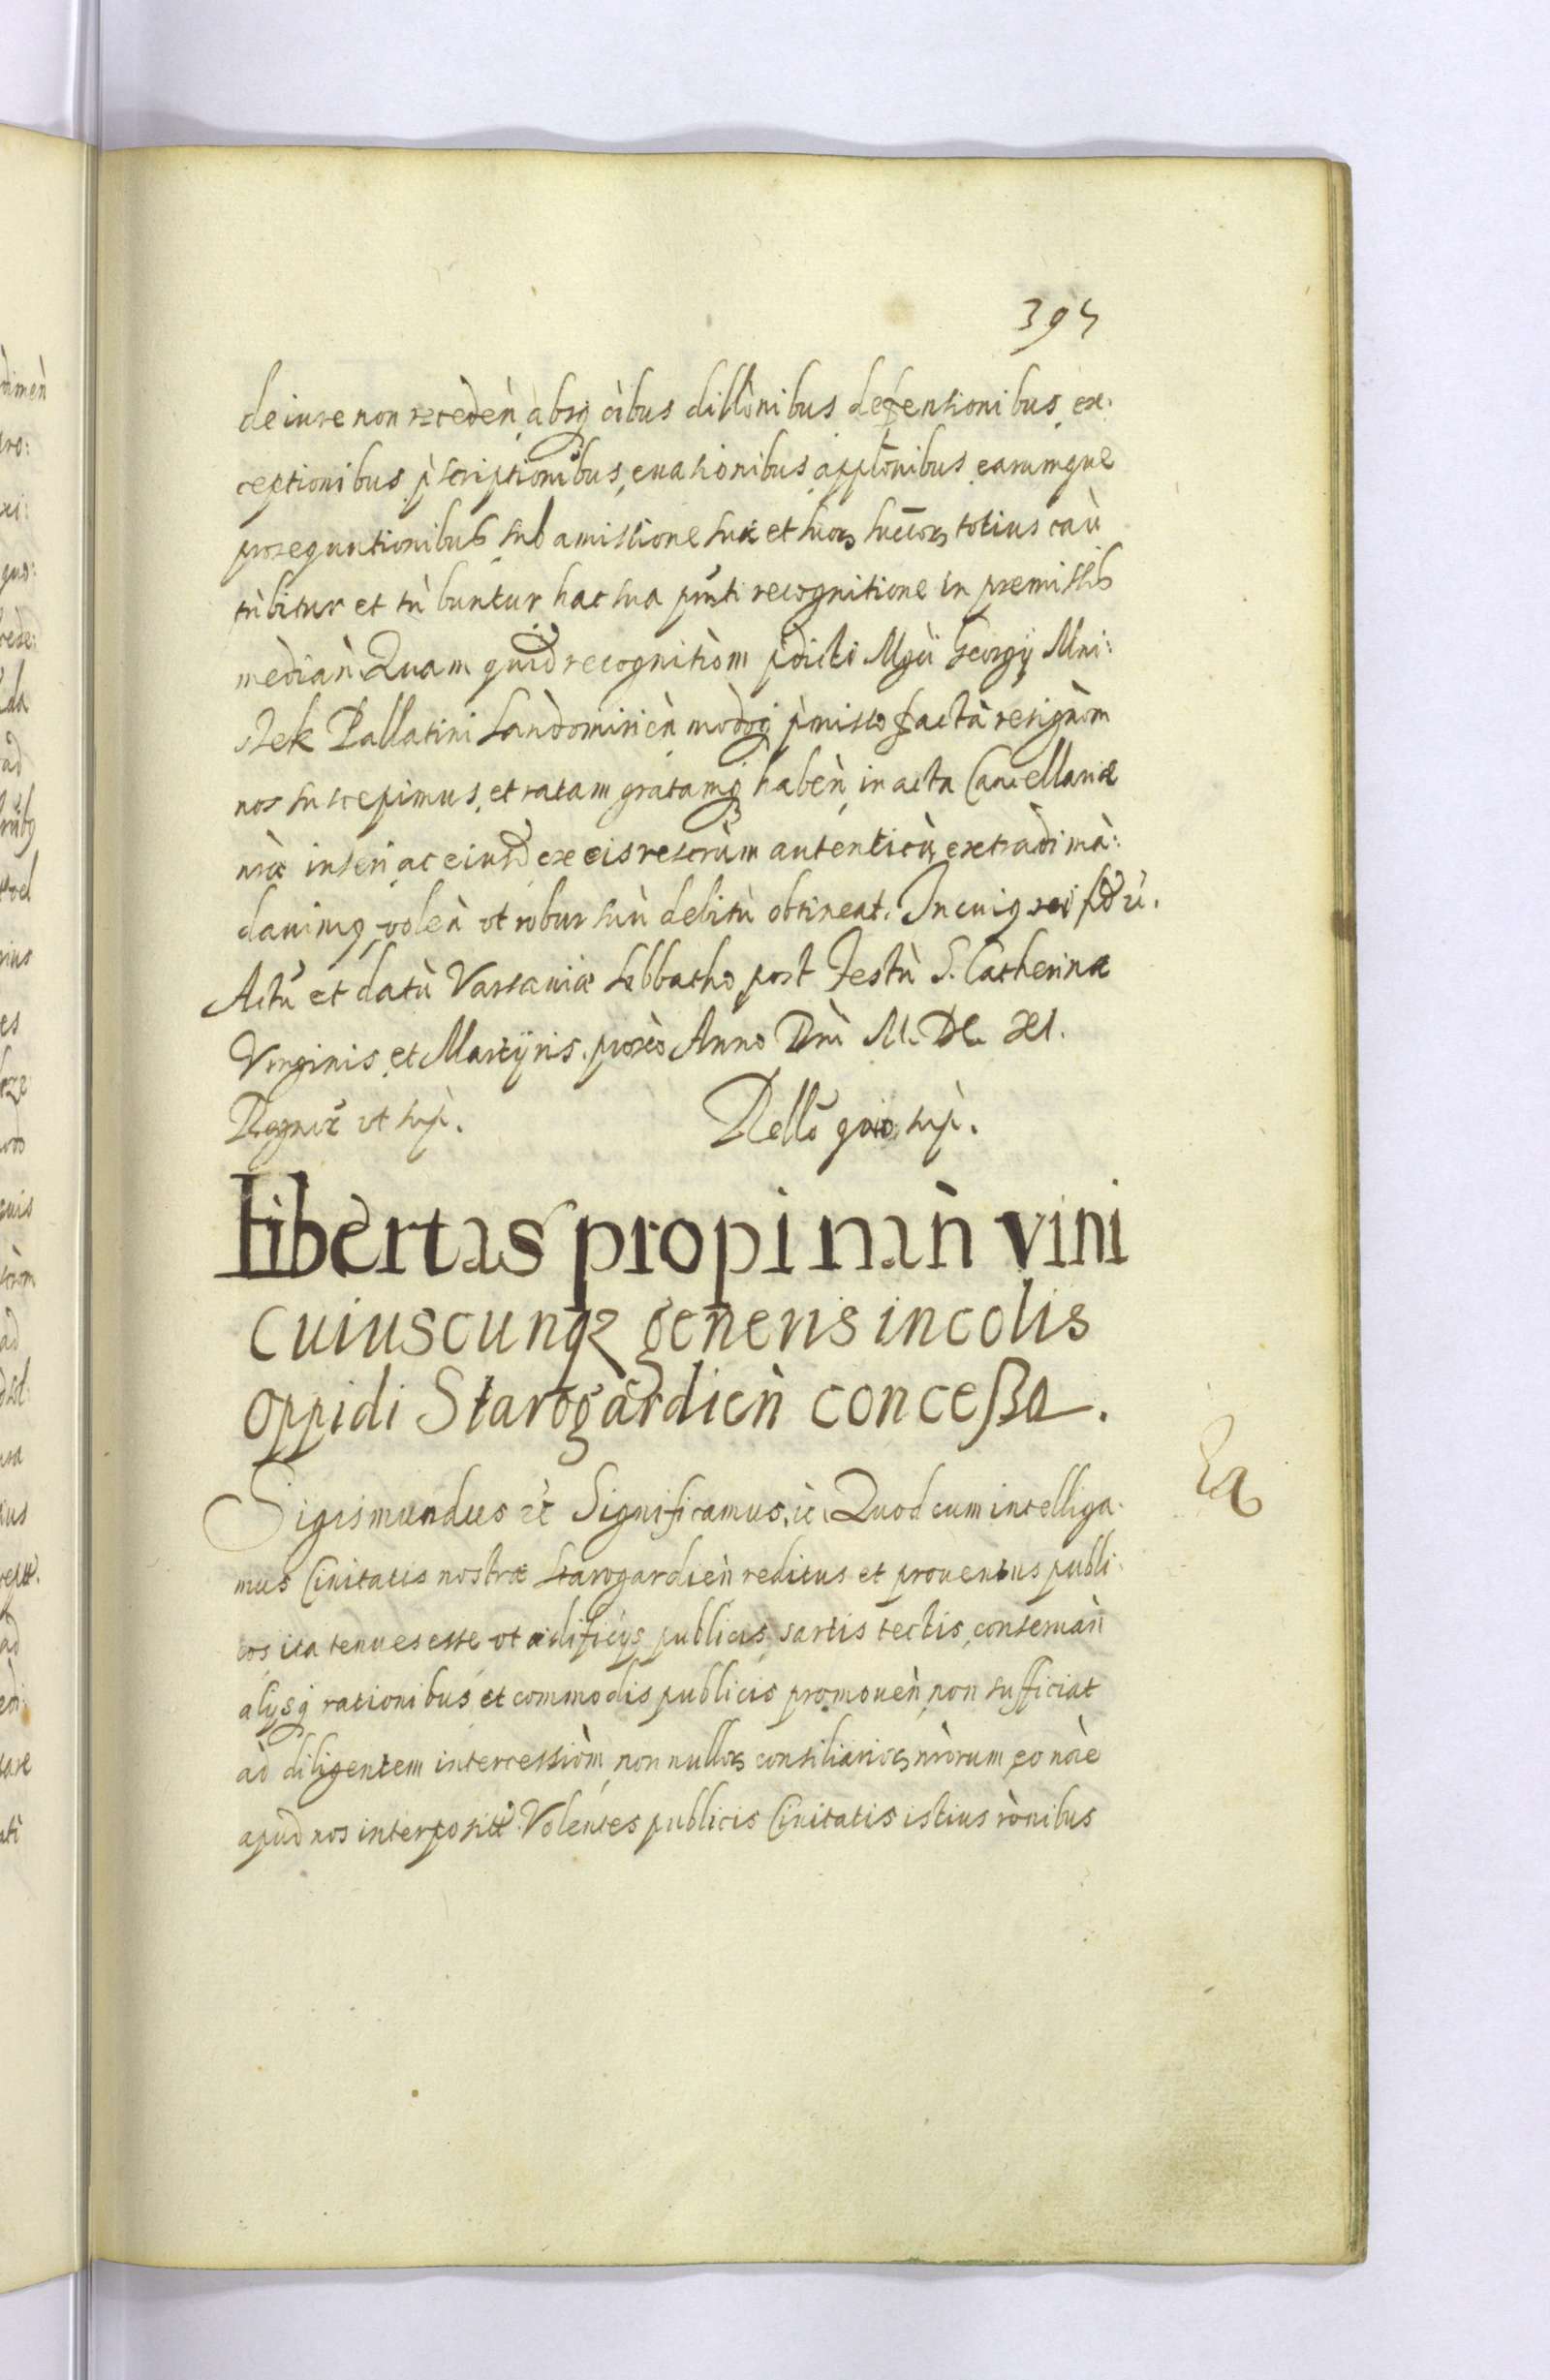 395
de iure non recèdeǹ, absq̨ oìbus dillònibus defensionibus, ex:
ceptionibus p̀scriptionibus, euasionibus, applònibus, earumque
prosequutionibus sub amissione suæ et suoꝝ succ̄oꝝ totius caù
tùbitur et tùbuntur, hac sua pn̄ti recognitione in premissis
mediaǹ. Quam quid recognitiòm p̀dicti Mg̀ci Georgij Mni:
szek Pallatini Sandomirieǹ modoq̨ p̀misso factà resignòm
nos suscepimus, et ratam gratamq̨ habeǹ, in acta Cancellariæ
nr̀æ inseri, ac eiusd̄ ex eis rescrùm autenticù, extradi mà:
dauimq̨ voleǹ vt robur suù debitù obtineat. In cuiq̨ rei fidē ù.
Actù et datù Varsauiæ Sabbatho post Festù S. Catherinæ
Virginis, et Martyris. proxò Anno Dnì M. DC. XI.
Regnor̄ vt sup̀.
Rello quio sup̀.
Libertas propinaǹ vini
cuiuscunqꝫ generis incolis
oppidi Starogardieǹ conceßa.
Sigismundus &c̀ Significamus, &c̀. Quod cum intelliga:
mus Ciuitatis nostræ Starogardieǹ reditus et prouentus publi:
cos ita tenues esse vt ædificijs publicis, sartis tectis, conseruaǹ
alijsq̨ rationibus et commodis publicis promoueǹ, non sufficiat
ad diligentem intercessiòm, non nulloꝝ consiliarioꝝ nr̀orum, eo noìe
apud nos interposità. Volentes publicis Ciuitatis istius rònibus